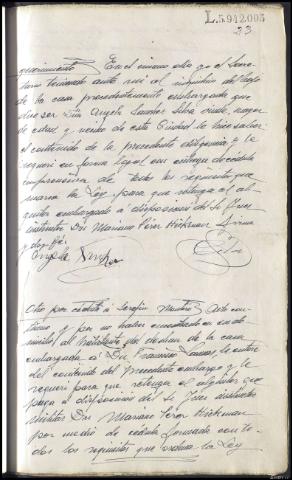 L.5.942.005
23
requerimiento En el mismo dia yo el Secre
tario teniendo ante mi al inquilino del bajo
de la casa precedentemente embargada que
dijo ser Dn Angel Sanchez Silva viudo, mayor
de edad y vecino de esta Ciudad le hice saber
el contenido de la precedente diligencia y le
requeri en forma legal con entrega de cedula
comprensiva de todos los requisitos que
marca la Ley para que retenga el al
quiler embargado a disposicion del Sr Juez
instructor Dn Mariano Perez Hickman firma
y doy fe.
Angel
Otro por cedula a Serafin Acto con
tinuo y por no haber encontrado en su do
micilio al habitante de la casa
embargada a Dn Francisco le entere
del contenido del precedente embargo y le
requeri para que retenga el alquiler que
paga a disposicion del Sr Juez instructor
Militar Don Mariano Perez Hickman
por medio de cedula formada con to
dos los requisitos que ordena la Ley